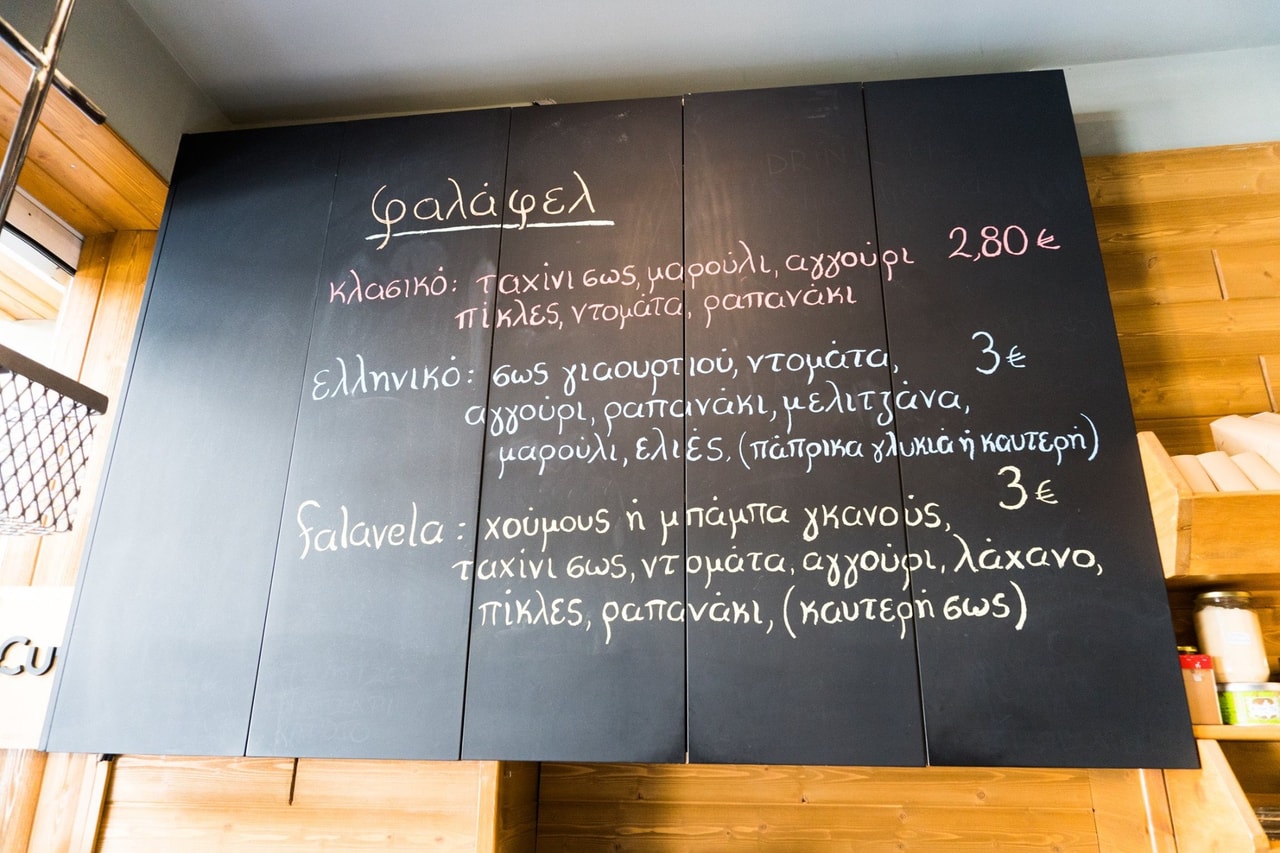 φαλάφελ
κλασικό: ταχίνι σως, μαρούλι, αγγούρι 2,80 €
πίκλες, ντομάτα, ραπανάκι
ελληνικό: σως γιαουρτιού, ντομάτα, 3 €
αγγούρι, ραπανάκι, μελιτζάνα,
μαρούλι, ελιές, (πάπρικα γλυκιά ή καυτερή)
3 €
falavela: χούμους ή μπάμπα γκανούς,
ταχίνι σως, ντομάτα, αγγούρι, λάχανο,
πίκλες, ραπανάκι, (καυτερή σως)
Cu